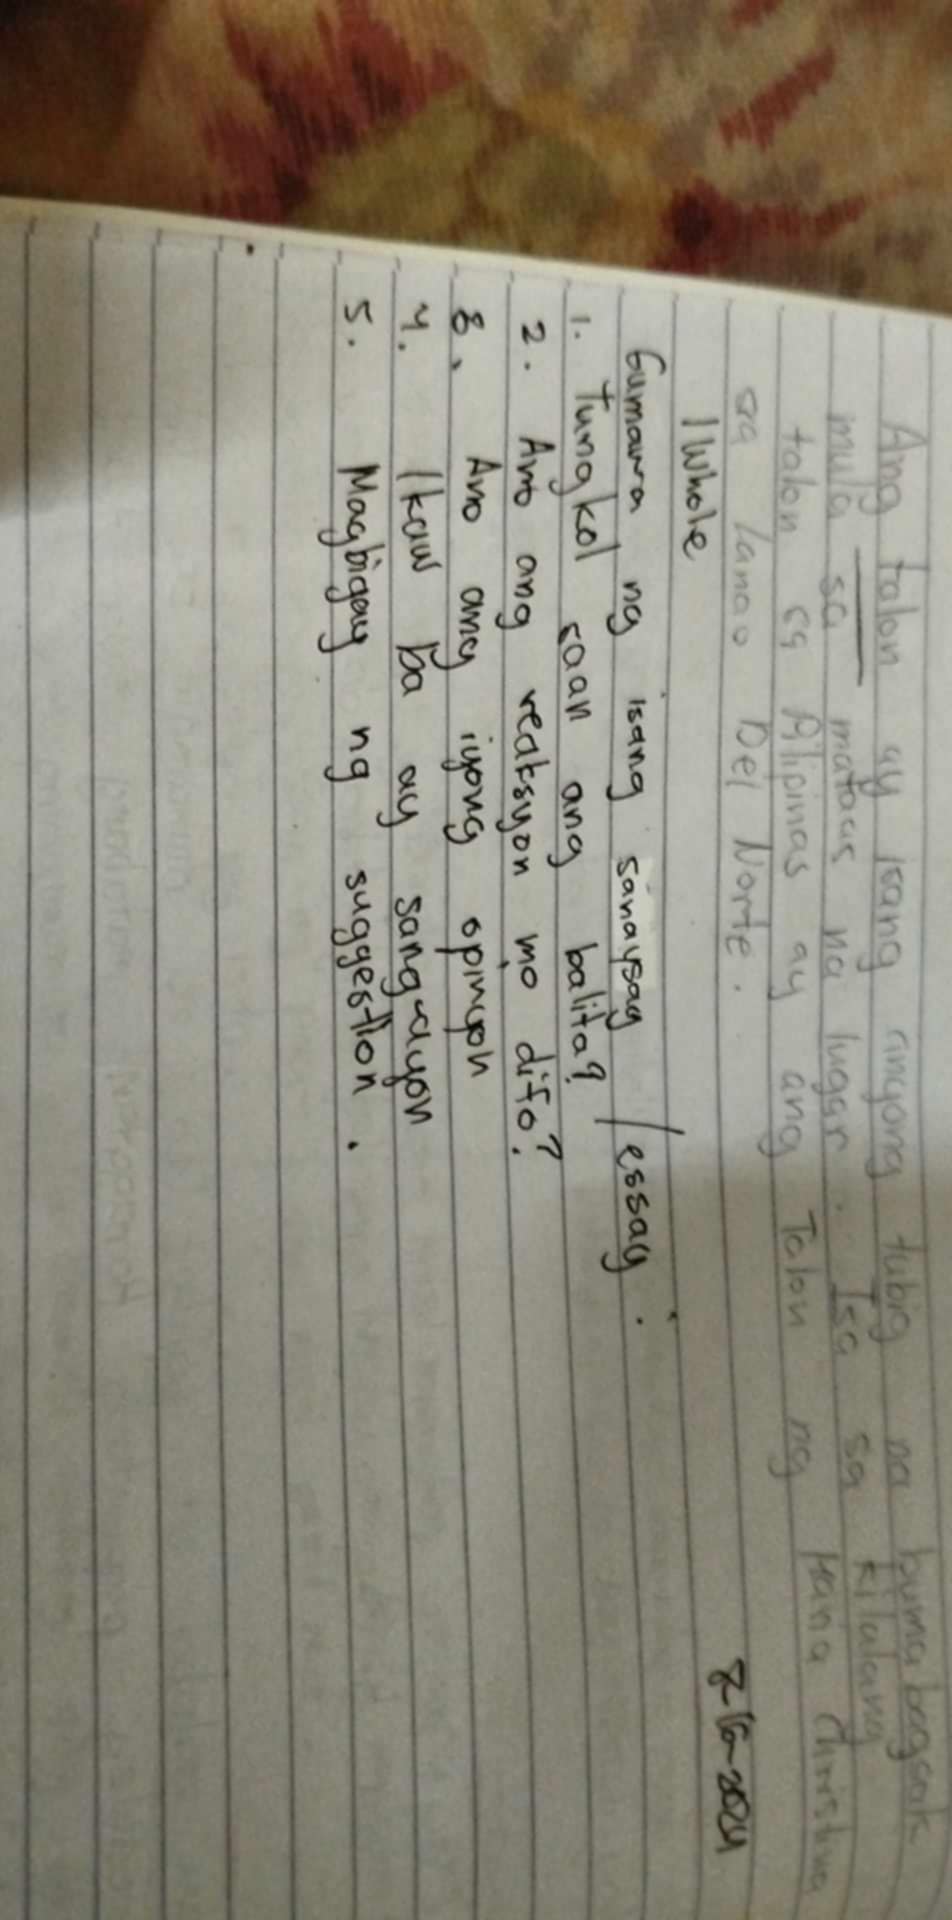 Ang talon ay isang anyong tubig na bumabagsak
mula sa mataas na lugar. Isa sa kilalang
talon sa Pilipinas ay ang Talon ng Maria Christina
sa Lanao Del Norte.
1 Whole
Gumawa ng isang sanaysay / essay.
1. Tungkol saan ang balita?
2. Ano ang reaksyon mo dito?
3. Ano ang iyong opinyon
4. Ikaw ba ay sang-ayon
5. Magbigay ng suggestion.